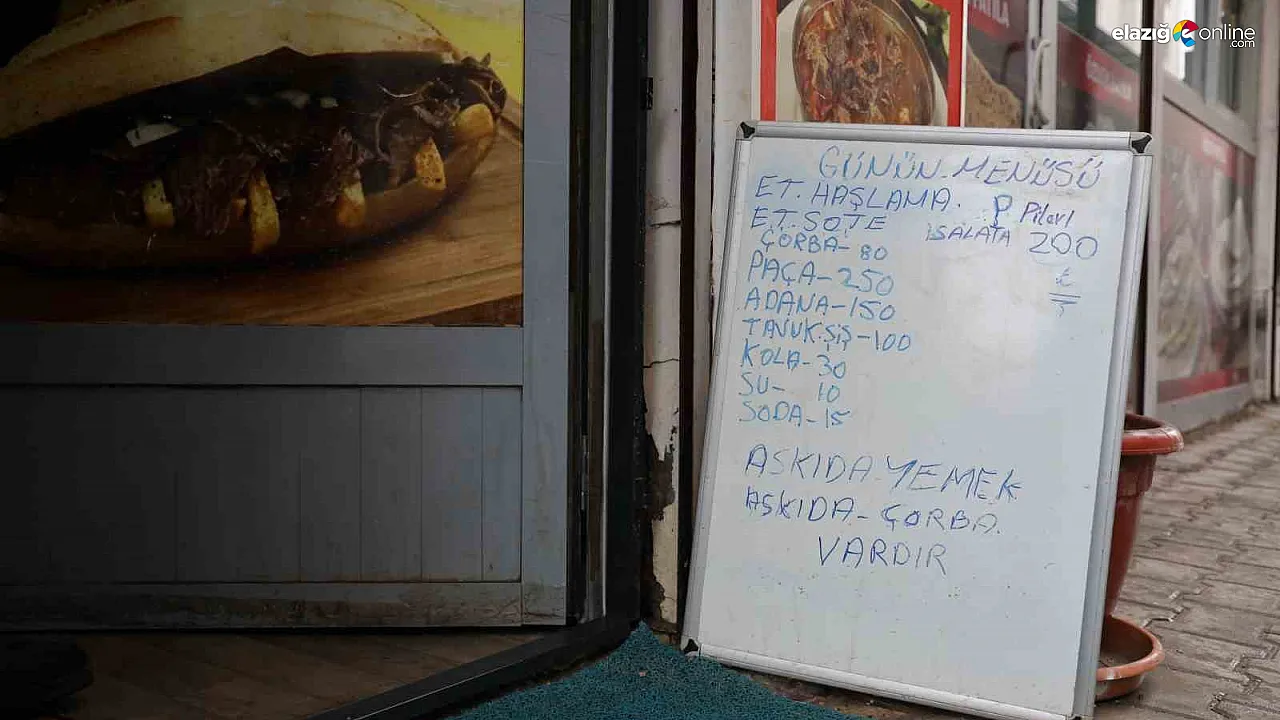 elazığ online
.com
GÜNÜN-MENÜSÜ
ET. HAŞLAMA. P Pilavı
ET. SOTE SALATA 200
₺
ÇORBA- 80
PAÇA-250
ADANA-150
TAVUK.ŞİŞ-100
KOLA-30
SU- 10
SODA-15
ASKIDA-YEMEK
ASKIDA-ÇORBA.
VARDIR